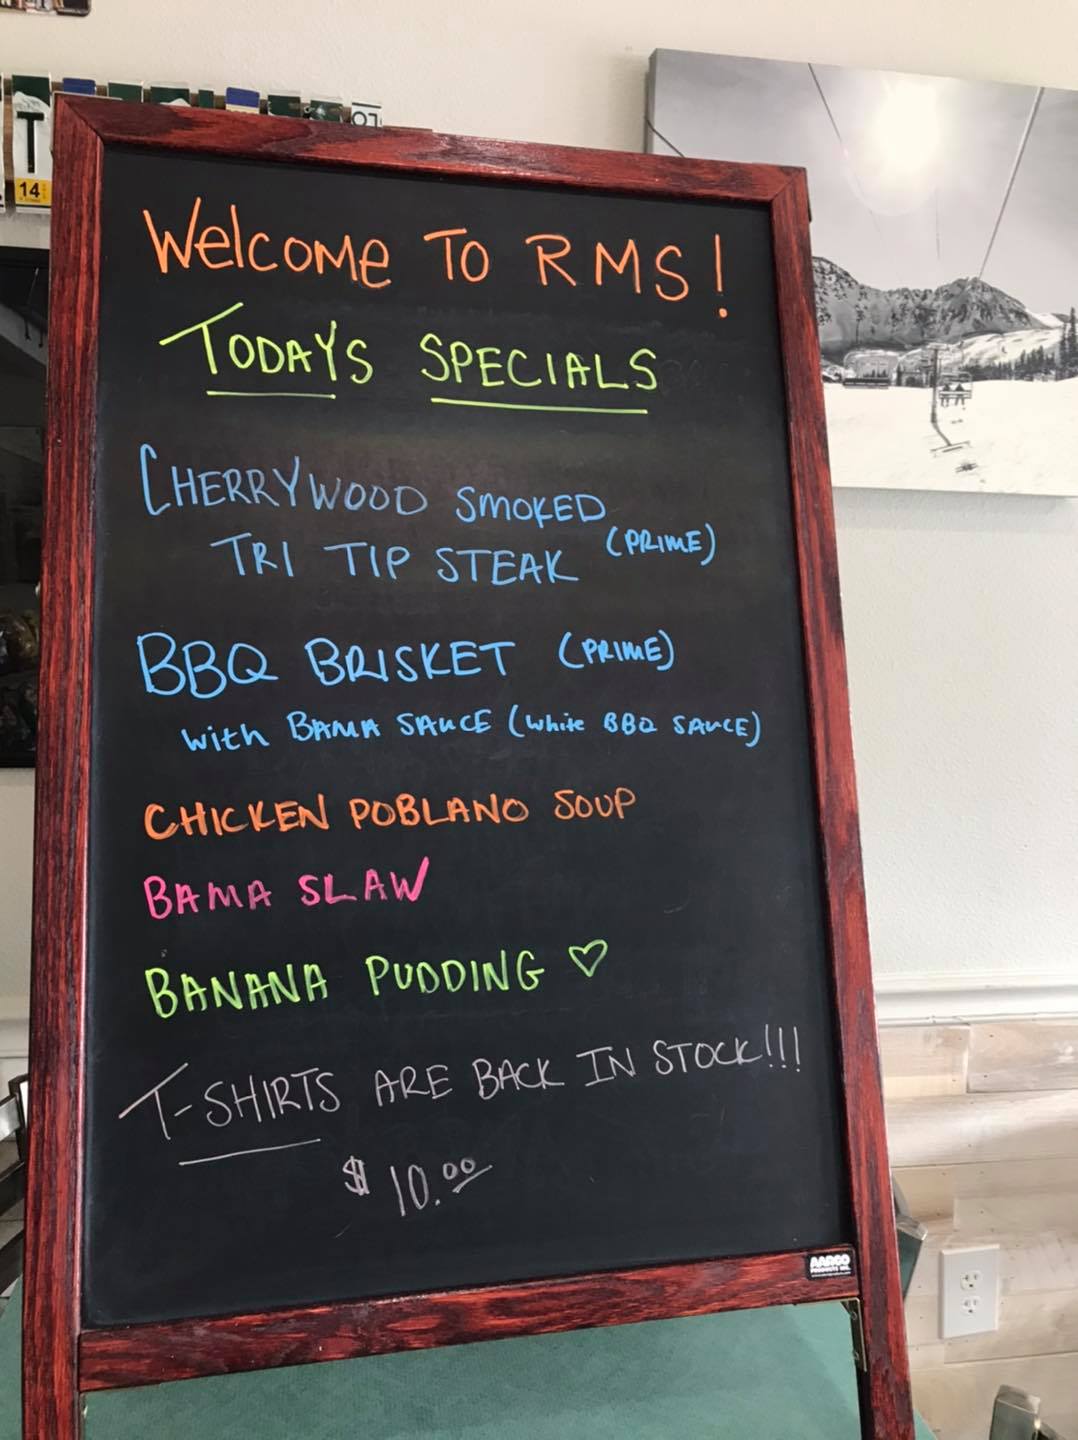 T
14
LO
Welcome To RMS!
TODAYS SPECIALS
CHERRYWOOD SMOKED
TRI TIP STEAK (PRIME)
BBQ BRISKET (PRIME)
with BAMA SAUCE (white BBQ SAUCE)
CHICKEN POBLANO SOUP
BAMA SLAW
BANANA PUDDING ♡
T-SHIRTS ARE BACK IN STOCK!!!
$10.00
AARCO
PRODUCTS INC.